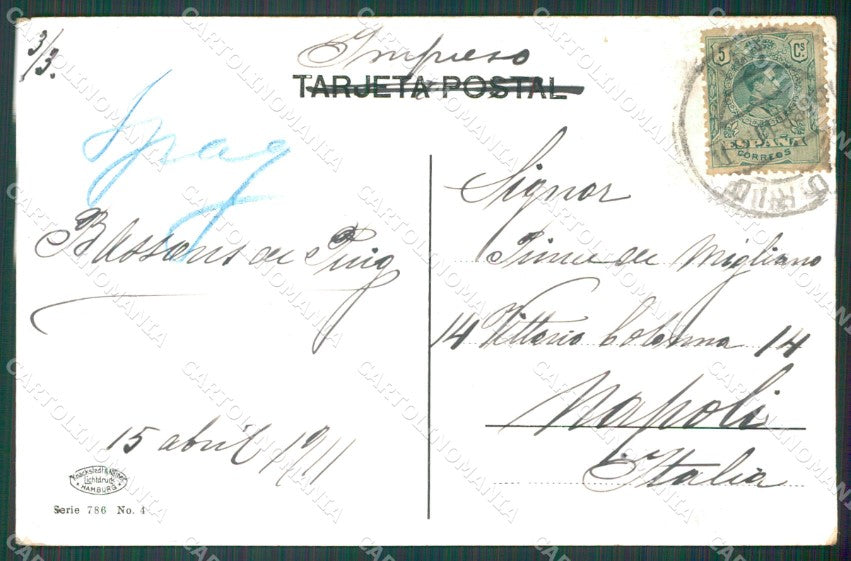 3/3.
Impreso
TARJETA POSTAL
5 Cs
ESPAÑA
CORREOS
Spag
Bassons de Puig
15 abril 1911
Signor
Prince de Migliano
14 Vittorio Colonna 14
Napoli
Italia
Knackstedt & Näther
Lichtdruck
HAMBURG
Serie 786 No. 4
CARTOLINOMANIA